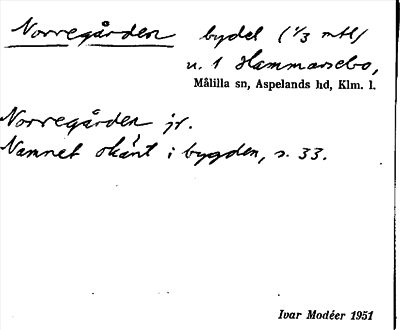 Norregården bydel (1/3 mtl)
u. 1 Hammarsebo,
Målilla sn, Aspelands hd, Klm. l.
Norregården jr.
Namnet okänt i bygden, s. 33.
Ivar Modéer 1951